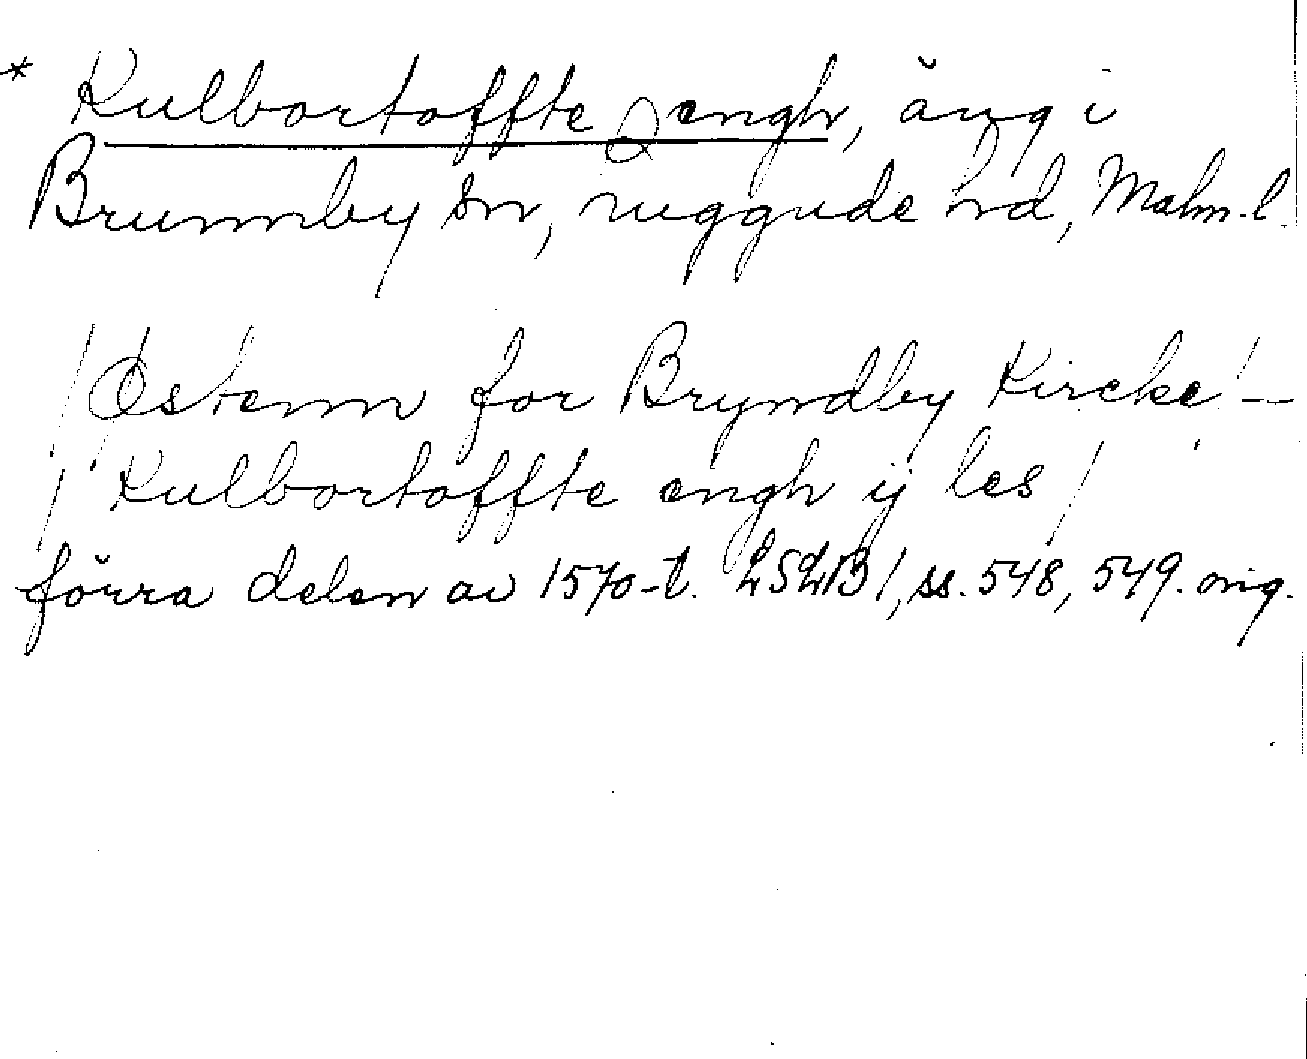 * Kulbortoffte engh, äng i
Brunnby sn, Luggude hd, Malm.l.
/Østenn for Bryndby Kircke! –
/ Kulbortoffte engh ij les /
förra delen av 1570-t. LSLB 1, ss. 548, 549. orig.